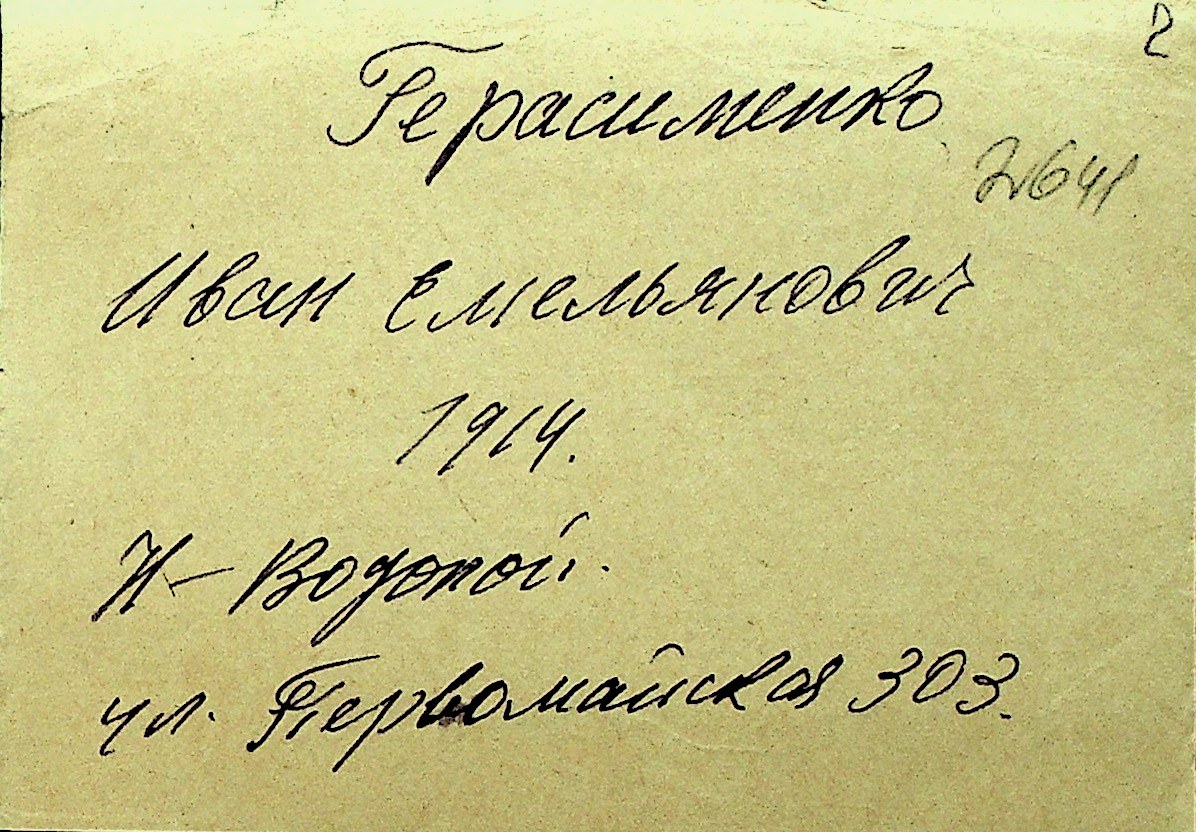 2
Герасименко
2641
Иван Емельянович
1914.
Н-Водопой.
ул. Первомайская 303.